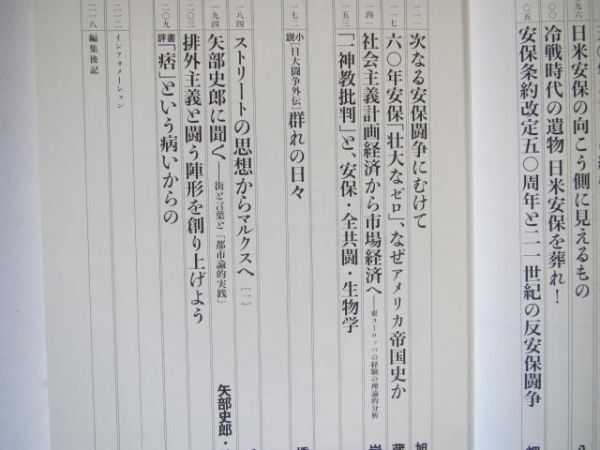 九六
日米安保の向こう側に見えるもの
冷戦時代の遺物 日米安保を葬れ!
〇五
安保条約改定五〇周年と二一世紀の反安保闘争
一一一
次なる安保闘争にむけて
一一七
六〇年安保「壮大なゼロ」、なぜアメリカ帝国史か
社会主義計画経済から市場経済へ――東ヨーロッパの経験の理論的分析
一五三
「一神教批判」と、安保・全共闘・生物学
一七二
小説[日大闘争外伝]群れの日々
一八四
ストリートの思想からマルクスへ[一]
一九四
矢部史郎に聞く――街と言葉と「都市論的実践」
矢部史郎・
二〇三
排外主義と闘う陣形を創り上げよう
二〇九
書評「痞」という病いからの
二一二
インフォメーション
二一八
編集後記